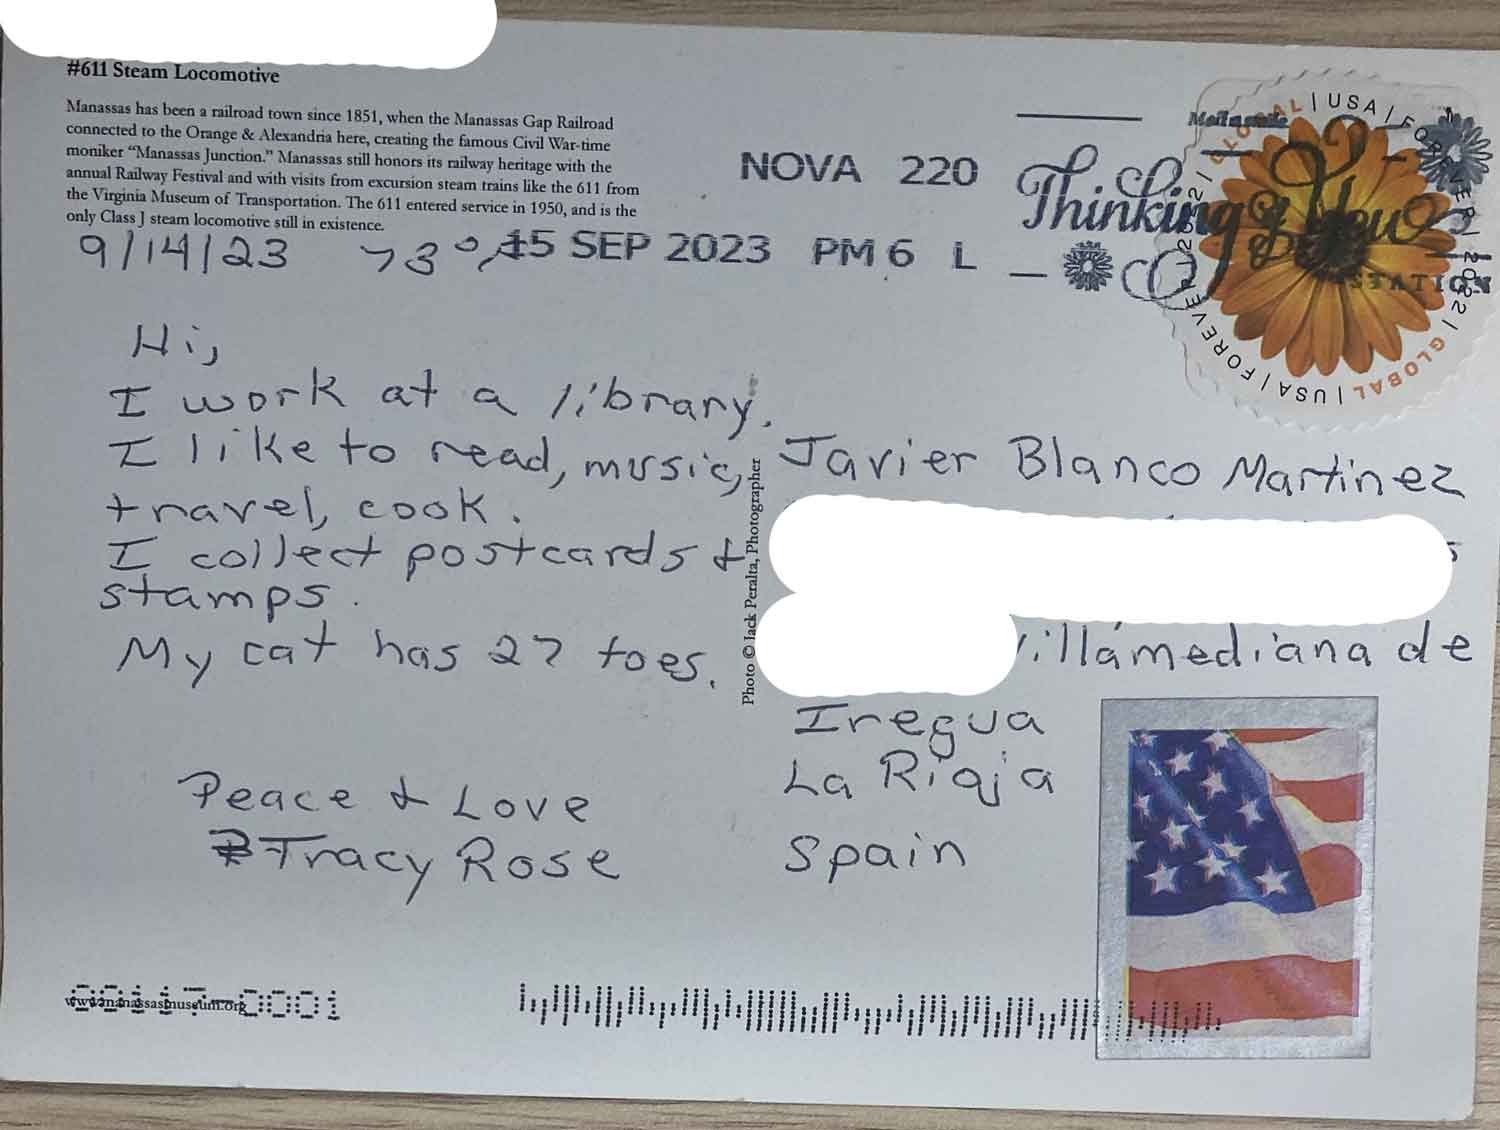 #611 Steam Locomotive
Manassas has been a railroad town since 1851, when the Manassas Gap Railroad
connected to the Orange & Alexandria here, creating the famous Civil War-time
moniker “Manassas Junction.” Manassas still honors its railway heritage with the
annual Railway Festival and with visits from excursion steam trains like the 611 from
the Virginia Museum of Transportation. The 611 entered service in 1950, and is the
only Class J steam locomotive still in existence.
9/14/23 73°
NOVA 220
15 SEP 2023 PM 6 L
Thinking of You
STATION
GLOBAL | USA | FOREVER | 2022 | GLOBAL | USA | FOREVER | 2022 |
Hi,
I work at a library.
I like to read, music,
travel, cook.
I collect postcards &
stamps.
My cat has 27 toes.
Peace & Love
Tracy Rose
Photo © Jack Peralta, Photographer
Javier Blanco Martinez
villamediana de
Iregua
La Rioja
Spain
www.manassasmuseum.org